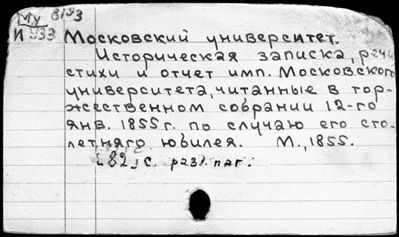 Му 81У3
И 433 Московский университет.
Историческая записка, речи,
стихи и отчет имп. Московского
университета, читанные в тор-
жественном собрании 12-го
янв. 1855 г. по случаю его сто-
летняго юбилея. М., 1855.
[82] с. разд. паг.